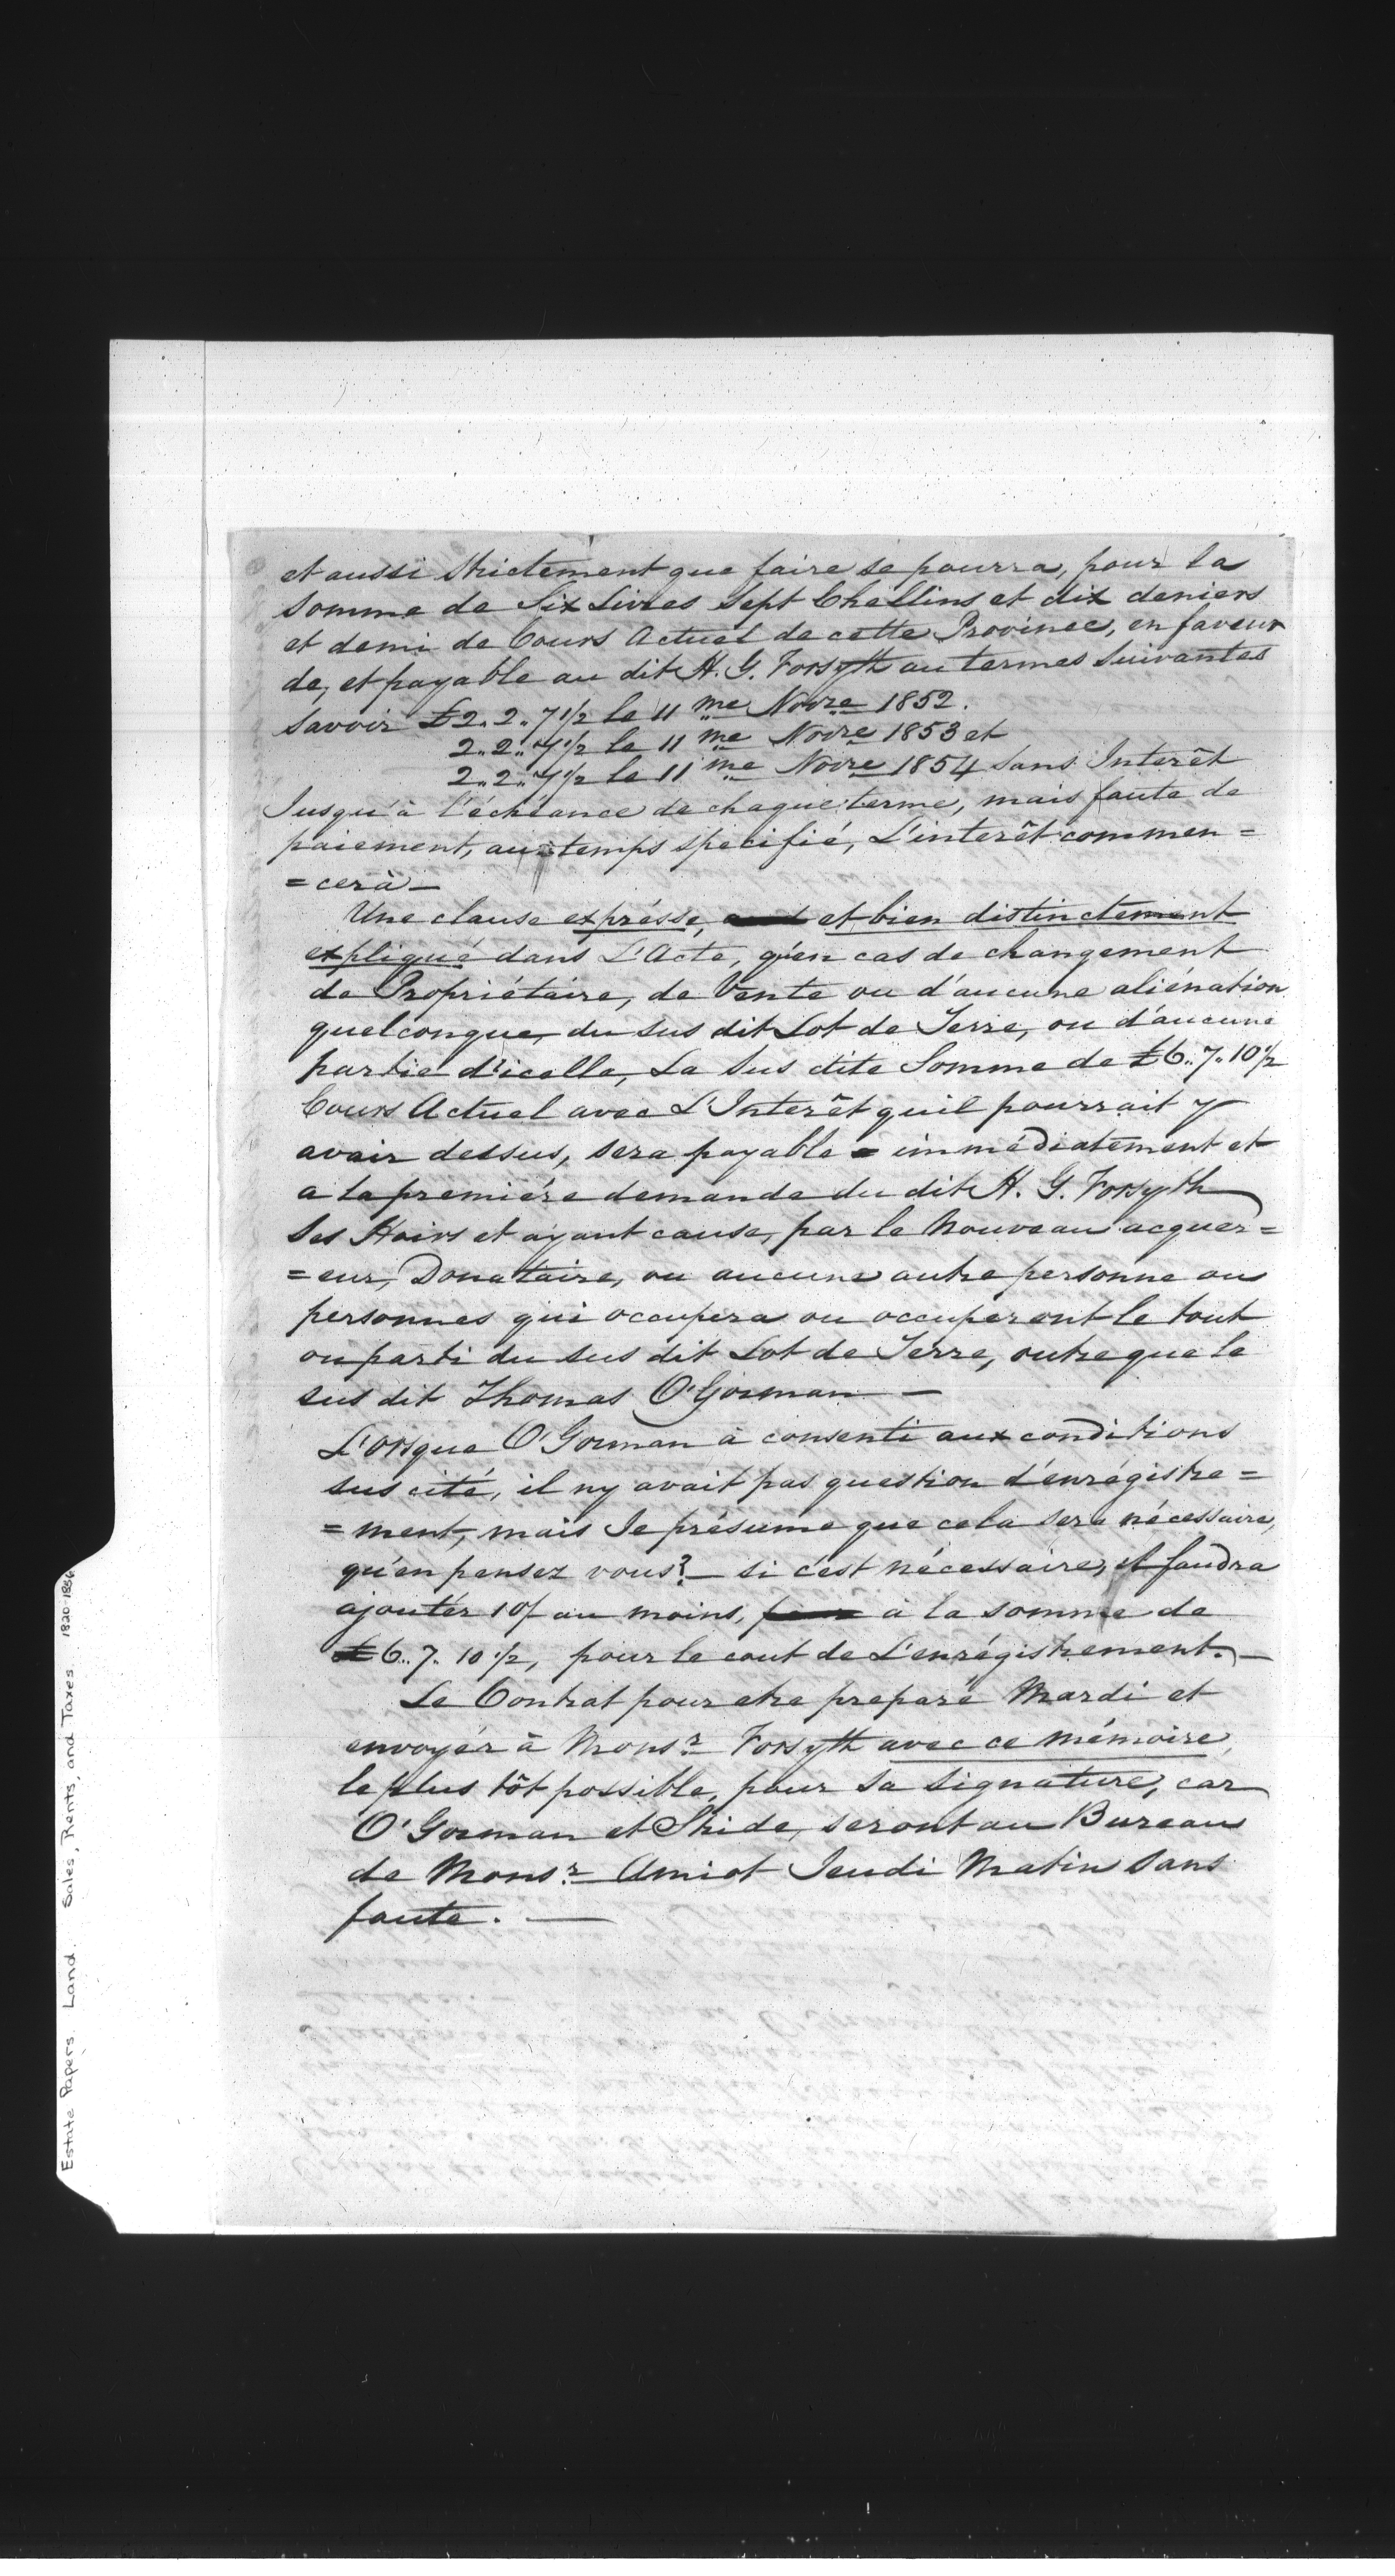 et aussi strictement que faire se pourra, pour la
somme de Six Livres Sept Chellins et dix deniers
et demi de Cours Actuel de cette Province, en faveur
de, et payable au dit H. G. Forsyth au termes suivantes
savoir £2.. 2.. 7 1/2 le 11 me Novre 1852.
2.. 2.. 7 1/2 le 11 me Novre 1853 et
2.. 2.. 7 1/2 le 11 me Novre 1854 sans Interêt
Jusqu'à l'échéance de chaque terme, mais faute de
paiement, au temps specifié, L'interêt commen=
=cerà—
Une clause exprésse, et bien distinctement
expliqué dans L'Acte, q'en cas de changement
de Propriétaire, de Vente ou d'aucune aliénation
quelconque, du sus dit Lot de Terre, ou d'aucune
partie d'icelle, La sus dite Somme de £6.. 7.. 10 1/2
Cours Actuel avec L'Interêt quil pourrait y
avoir dessus, sera payable immédiatement et
a la première demande du dit H. G. Forsyth
Ses Hoirs et ayant cause, par le Nouveau acquer=
=eur, Donataire, ou aucune autre personne ou
personnes qui occupera ou occuperont le tout
ou parti du sus dit Lot de Terre, outre que le
sus dit Thomas O'Gorman —
L'orsque O'Gorman à consenti aux conditions
sus cité, il ny avait pas question d'enrégistre=
=ment, mais Je présume que cela sera nécessaire,
qu'en pensez vous? — si c'est nécessaire, il faudra
ajoutér 10/ au moins, à la somme de
£6.. 7.. 10 1/2, pour le cout de L'enrégistrement. —
Le Contrat pour etre preparé Mardi et
envoyér à Monsr. Forsyth avec ce mémoire,
le plus tôt possible, pour sa signature, car
O'Gorman et Stride, seront au Bureau
de Monsr. Amiot Jeudi Matin sans
faute. —
Estate Papers. Land. Sales, Rents, and Taxes. 1820-1856